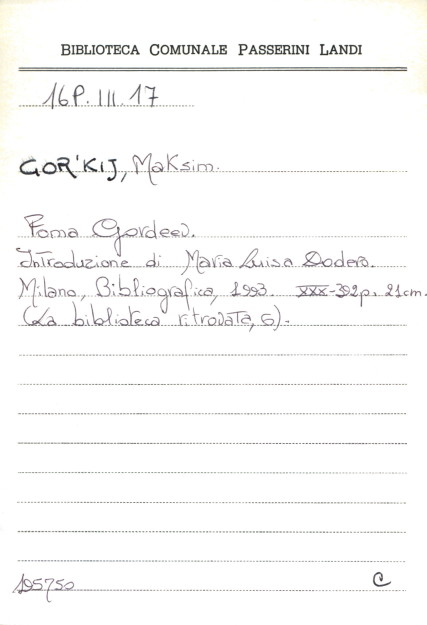 BIBLIOTECA COMUNALE PASSERINI LANDI
16P. III. 17
GOR'KIJ, Maksim.
Foma Gordeev.
Introduzione di Maria Luisa Dodero.
Milano, Bibliografica, 1993. XXX-392p. 21cm.
(La biblioteca ritrovata, 6).
195750 C